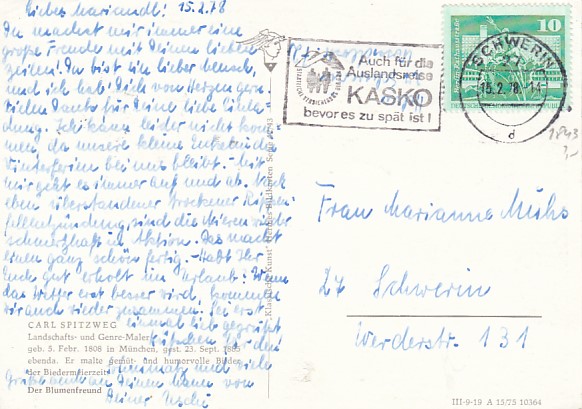 Liebes Mariandl! 15.2.78
Du machst mir immer eine
große Freude mit Deinen lieben
Zeilen! Du bist ein lieber Mensch,
und ich hab' Dich von Herzen gern.
Vielen Dank für Deine liebe Einla-
dung. Ich kann leider nicht
kommen, da unsere kleine
bei uns bleibt. - Mit
mir geht es immer auf und ab. Nach
eben überstandener trockener Rippen-
fellentzündung, sind die Nieren wieder
schmerzhaft in Aktion. Das macht
einen ganz schön fertig. - Habt Ihr
Euch gut erholt im Urlaub? Wenn
das Wetter erst besser wird, kommen
wir auch wieder zusammen. Sei erst
einmal lieb gegrüßt
für den
und viele
Grüße an Deinen Mann von
Deiner Uschi
CARL SPITZWEG
Landschafts- und Genre-Maler
geb. 5. Febr. 1808 in München, gest. 23. Sept. 1885
ebenda. Er malte gemüt- und humorvolle Bilder
der Biedermeierzeit
Der Blumenfreund
Auch für die
Auslandsreise
KASKO
bevor es zu spät ist!
SCHWERIN
27
15.2.78-14
d
10
1843
Frau Marianne Muhs
27 Schwerin
Werderstr. 131
III-9-19 A 15/75 10364